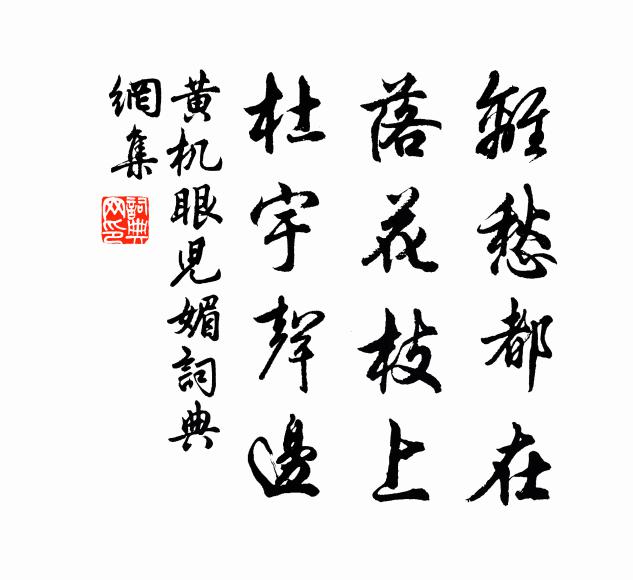 離愁都在
落花枝上
杜宇聲邊
黄机眼児媚詞典
網集
詞典
网印